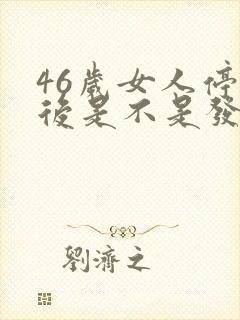 46歲女人停
後是不是發
劉濟之